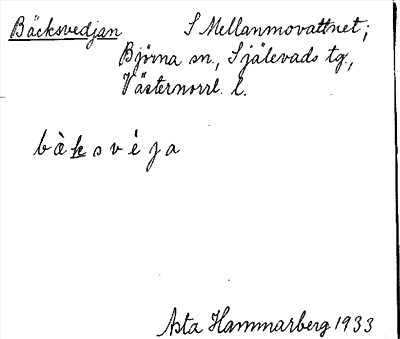 Bäcksvedjan S Mellanmovattnet;
Björna sn., Själevads tg.,
Västernorrl. l.
bàksvéja
Asta Hammarberg 1933